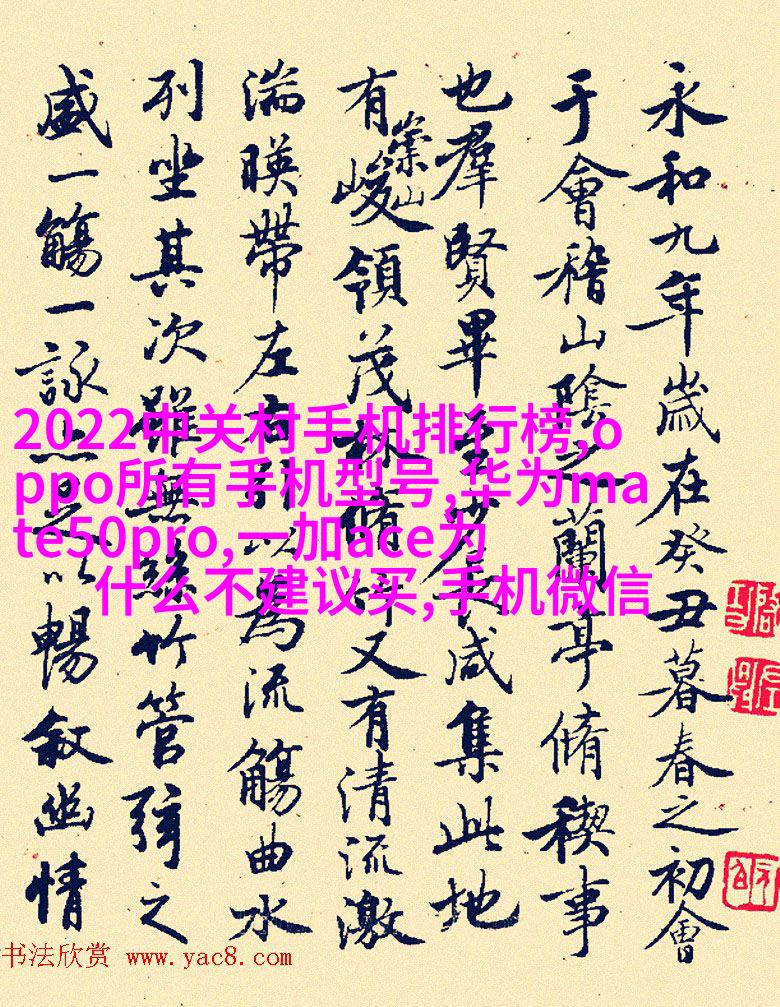 永和九年歲在癸丑暮春之初會
于會稽山陰之蘭亭脩稧事
也羣賢畢至少長咸集此地
有崇山峻領茂林脩竹又有清流激
湍暎帶左右引以為流觴曲水
列坐其次雖無絲竹管弦之
盛一觴一詠亦足以暢敘幽情
2022中关村手机排行榜,o
ppo所有手机型号,华为ma
te50pro,一加ace为
什么不建议买,手机微信
书法欣赏 www.yac8.com